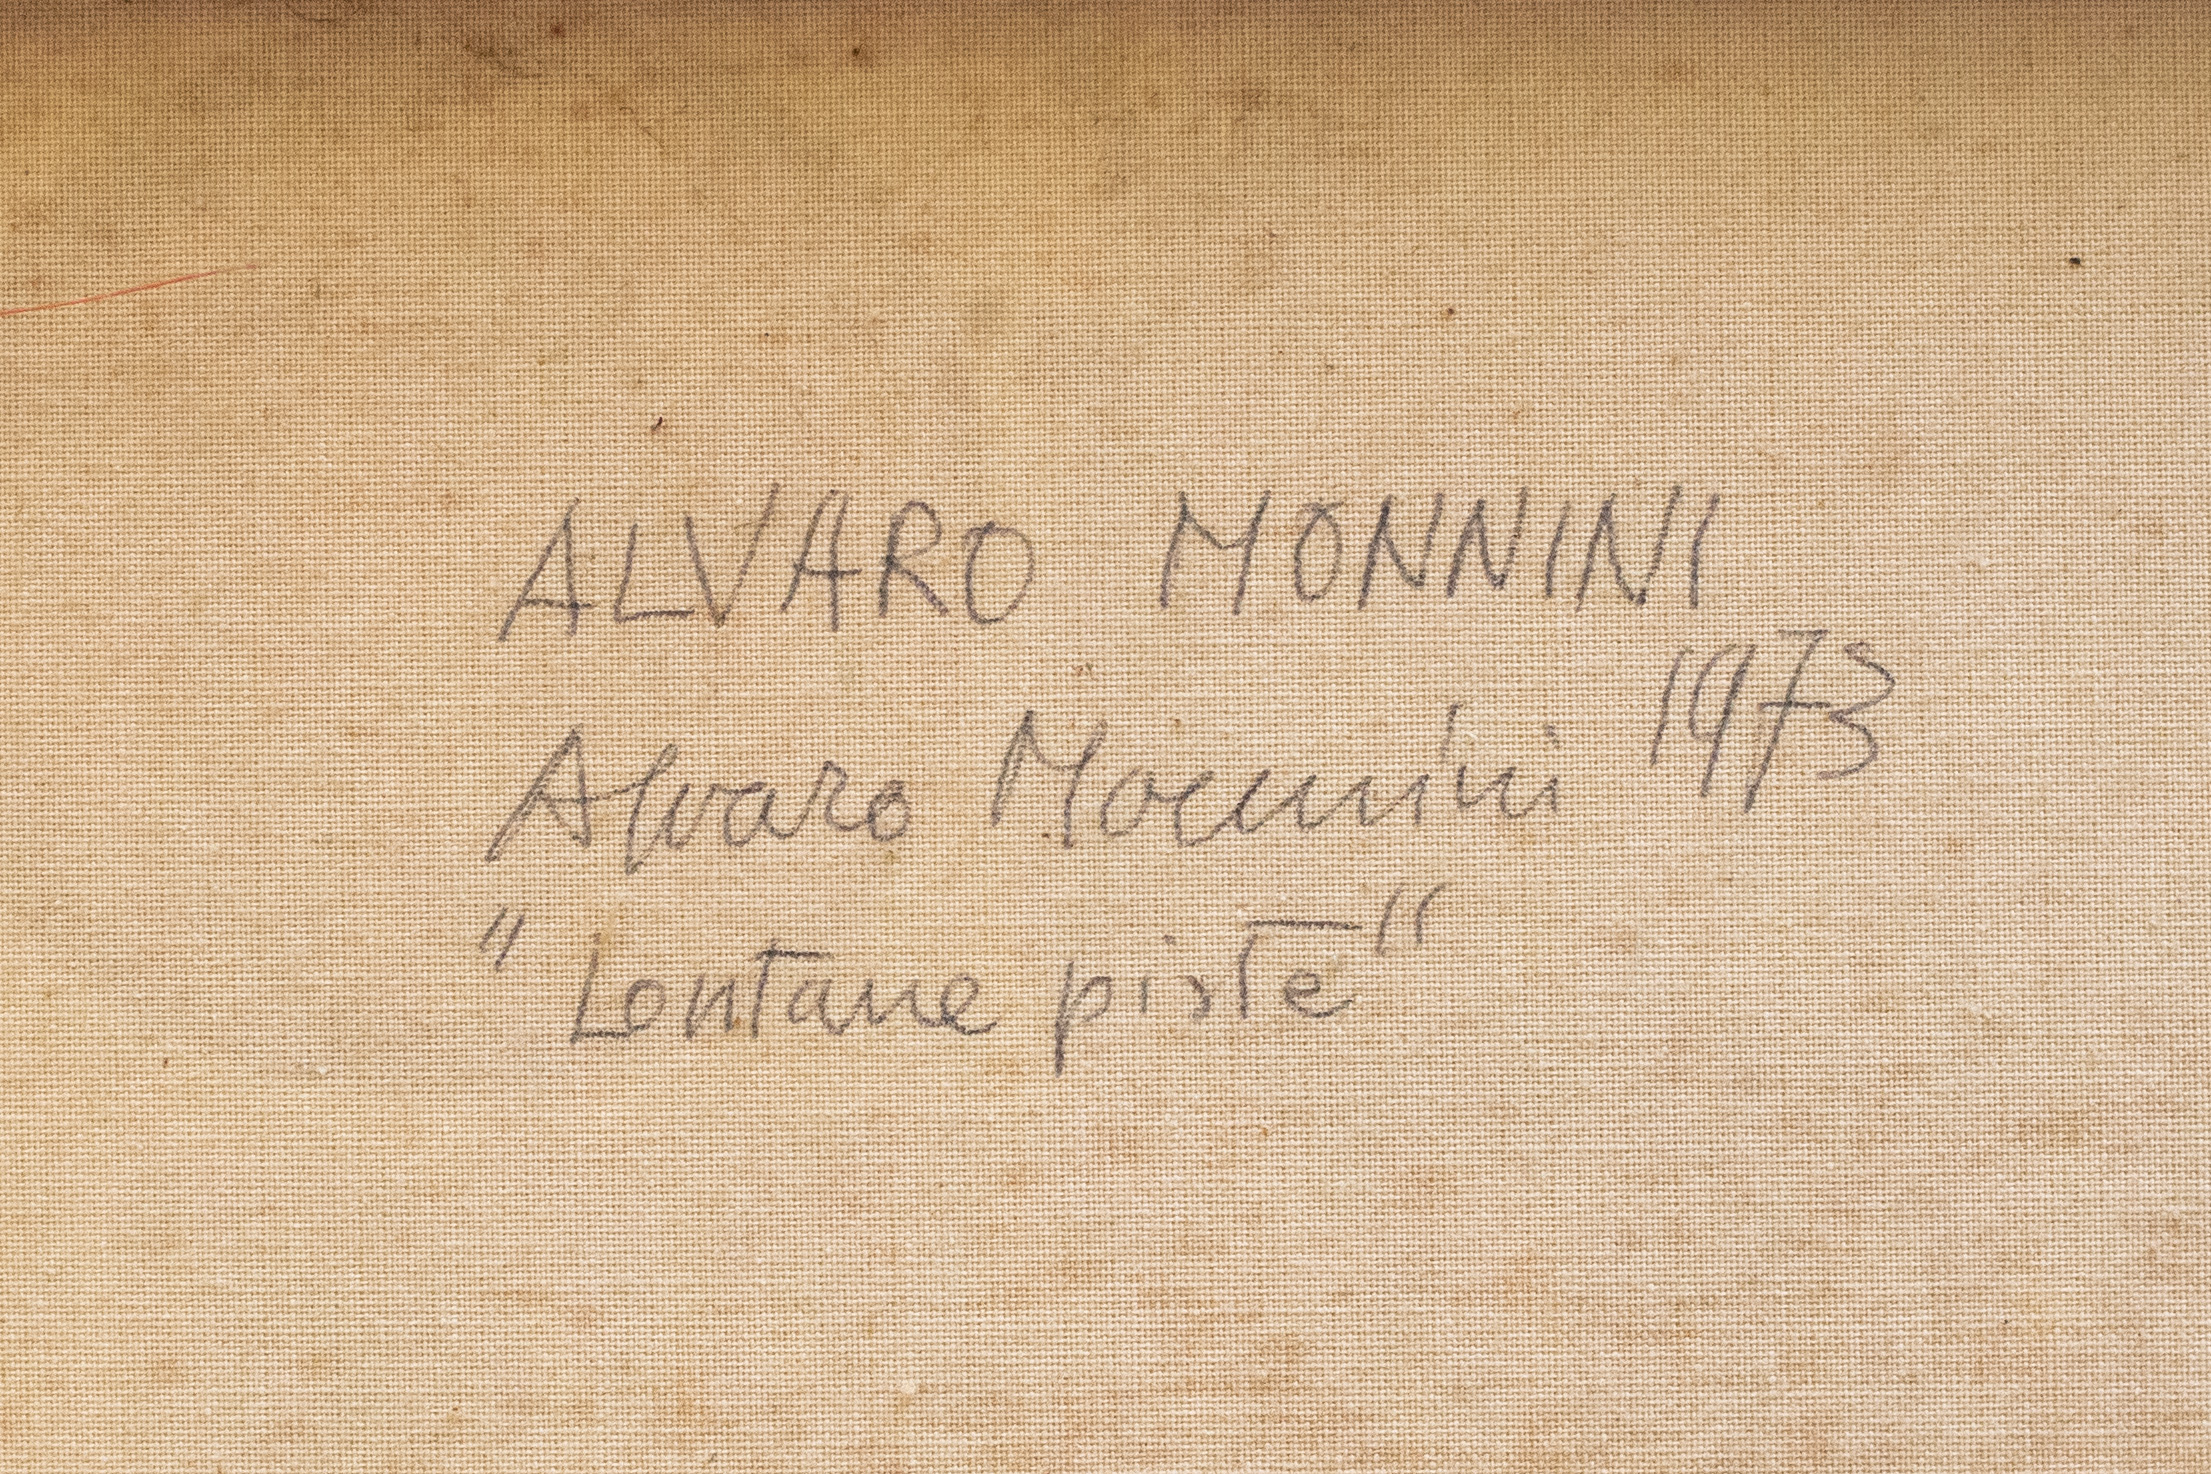 ALVARO MONNINI
Alvaro Monnini 1973
"Lontane piste"